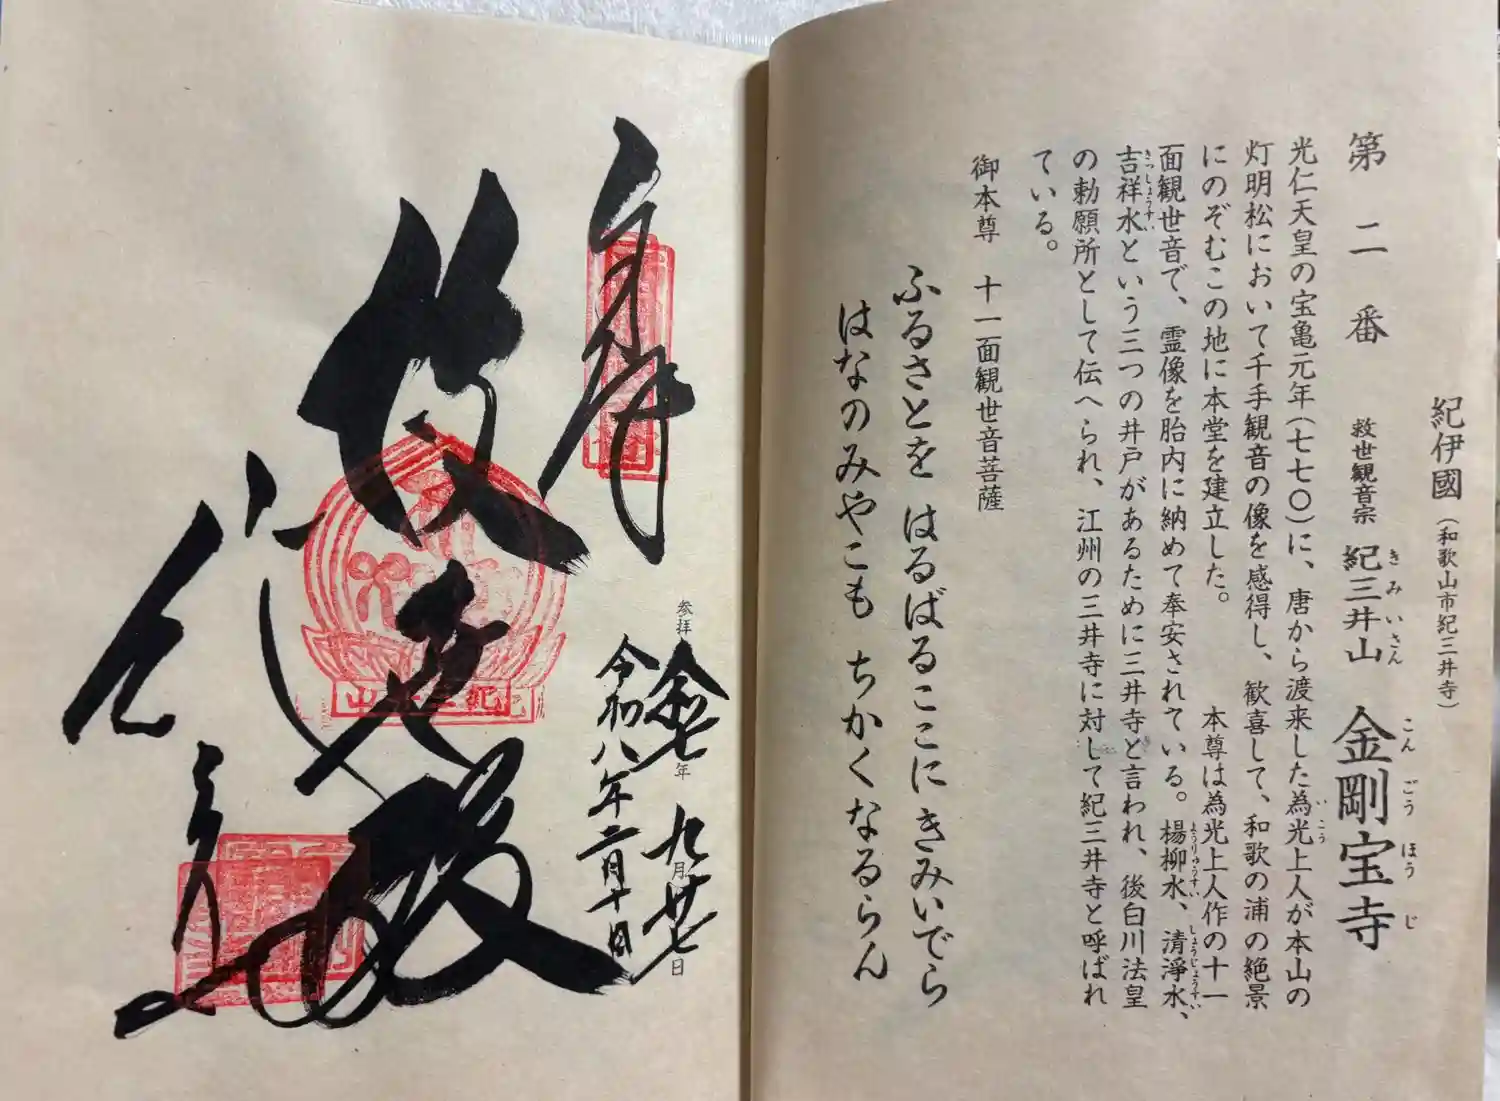 紀伊國(和歌山市紀三井寺)
第二番 救世観音宗 紀三井山 金剛宝寺
きみいさん こんごうほうじ
光仁天皇の宝亀元年(七七〇)に、唐から渡来した為光上人が本山の
いこう
灯明松において千手観音の像を感得し、歓喜して、和歌の浦の絶景
にのぞむこの地に本堂を建立した。 本尊は為光上人作の十一
面観世音で、霊像を胎内に納めて奉安されている。楊柳水、清浄水、
ようりゅうすい しょうじょうすい
吉祥水という三つの井戸があるために三井寺と言われ、後白川法皇
きっしょうすい
の勅願所として伝へられ、江州の三井寺に対して紀三井寺と呼ばれ
ている。
御本尊 十一面観世音菩薩
ふるさとを はるばるここにきみいでら
はなのみやこも ちかくなるらん
奉拝
参拝 令和七年 九月廿七日
令和八年二月十日
救世殿